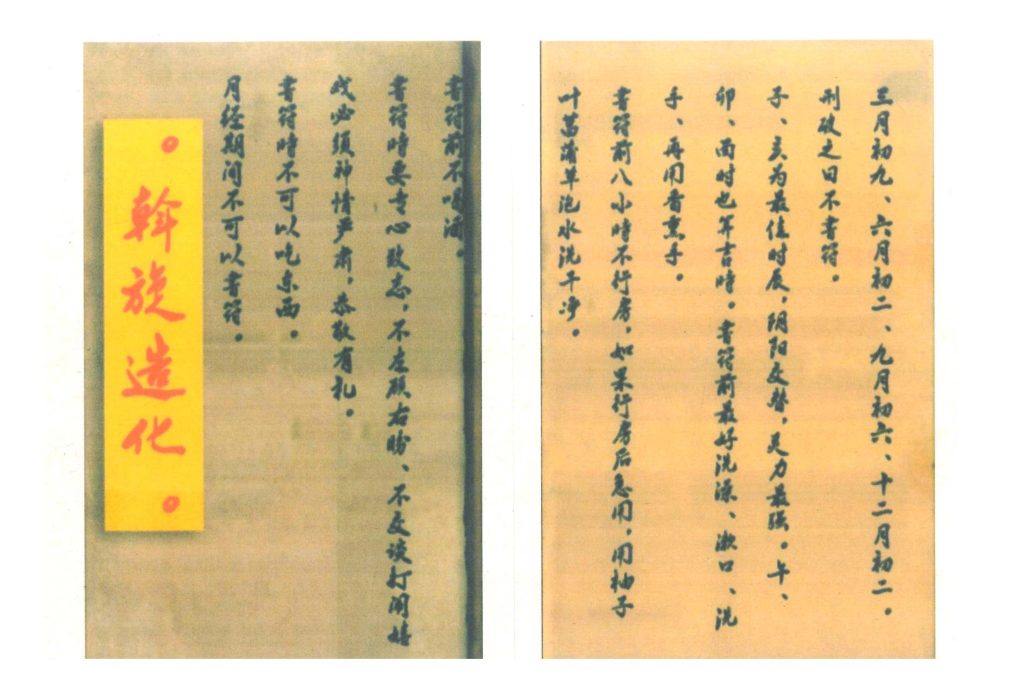 三月初九、六月初二、九月初六、十二月初二。
刑破之日不書符。
子、亥为最佳时辰，阴阳交替，灵力最强。午、
卯、酉时也算吉時。書符前最好洗澡、漱口、洗
手、再用香熏手。
書符前八小時不行房，如果行房后急用，用柚子
叶菖蒲草泡水洗干净。
書符前不喝酒。
書符時要专心致志，不左顾右盼、不交谈打闹嬉
戏必须神情严肃，恭敬有礼。
書符時不可以吃东西。
月经期间不可以書符。
。斡旋造化。